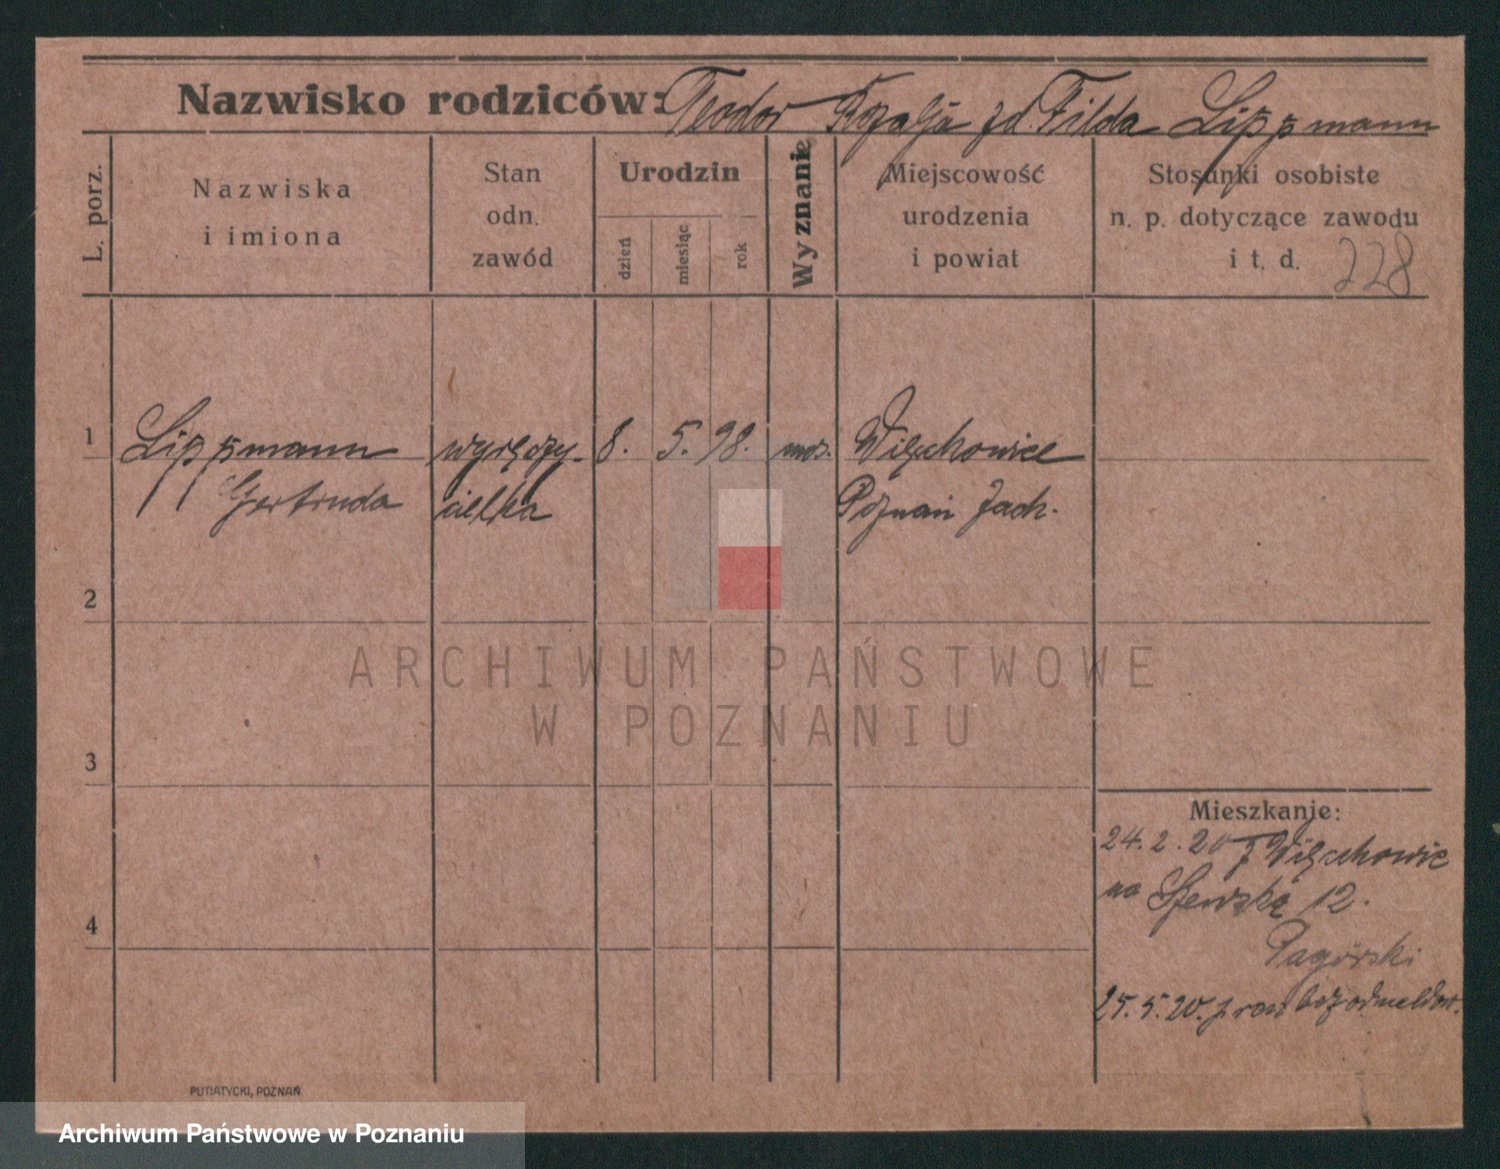 Nazwisko rodziców: Teodor Rozalja zd. Filda Lippmann
L. porz.
Nazwiska i imiona
Stan odn. zawód
Urodzin
dzień
miesiąc
rok
Wyznanie
Miejscowość urodzenia i powiat
Stosunki osobiste n. p. dotyczące zawodu i t. d.
228
1 Lippmann wyręczy- 8. 5. 98. moś. Więckowice
Gertruda cielka Poznań Zach.
2
3
4
ARCHIWUM PAŃSTWOWE
W POZNANIU
Mieszkanie:
24.2.20 z Więckowic
na Szewską 12.
Pagórski
25.5.20. bez odmeldow.
PUTIATYCKI, POZNAŃ
Archiwum Państwowe w Poznaniu